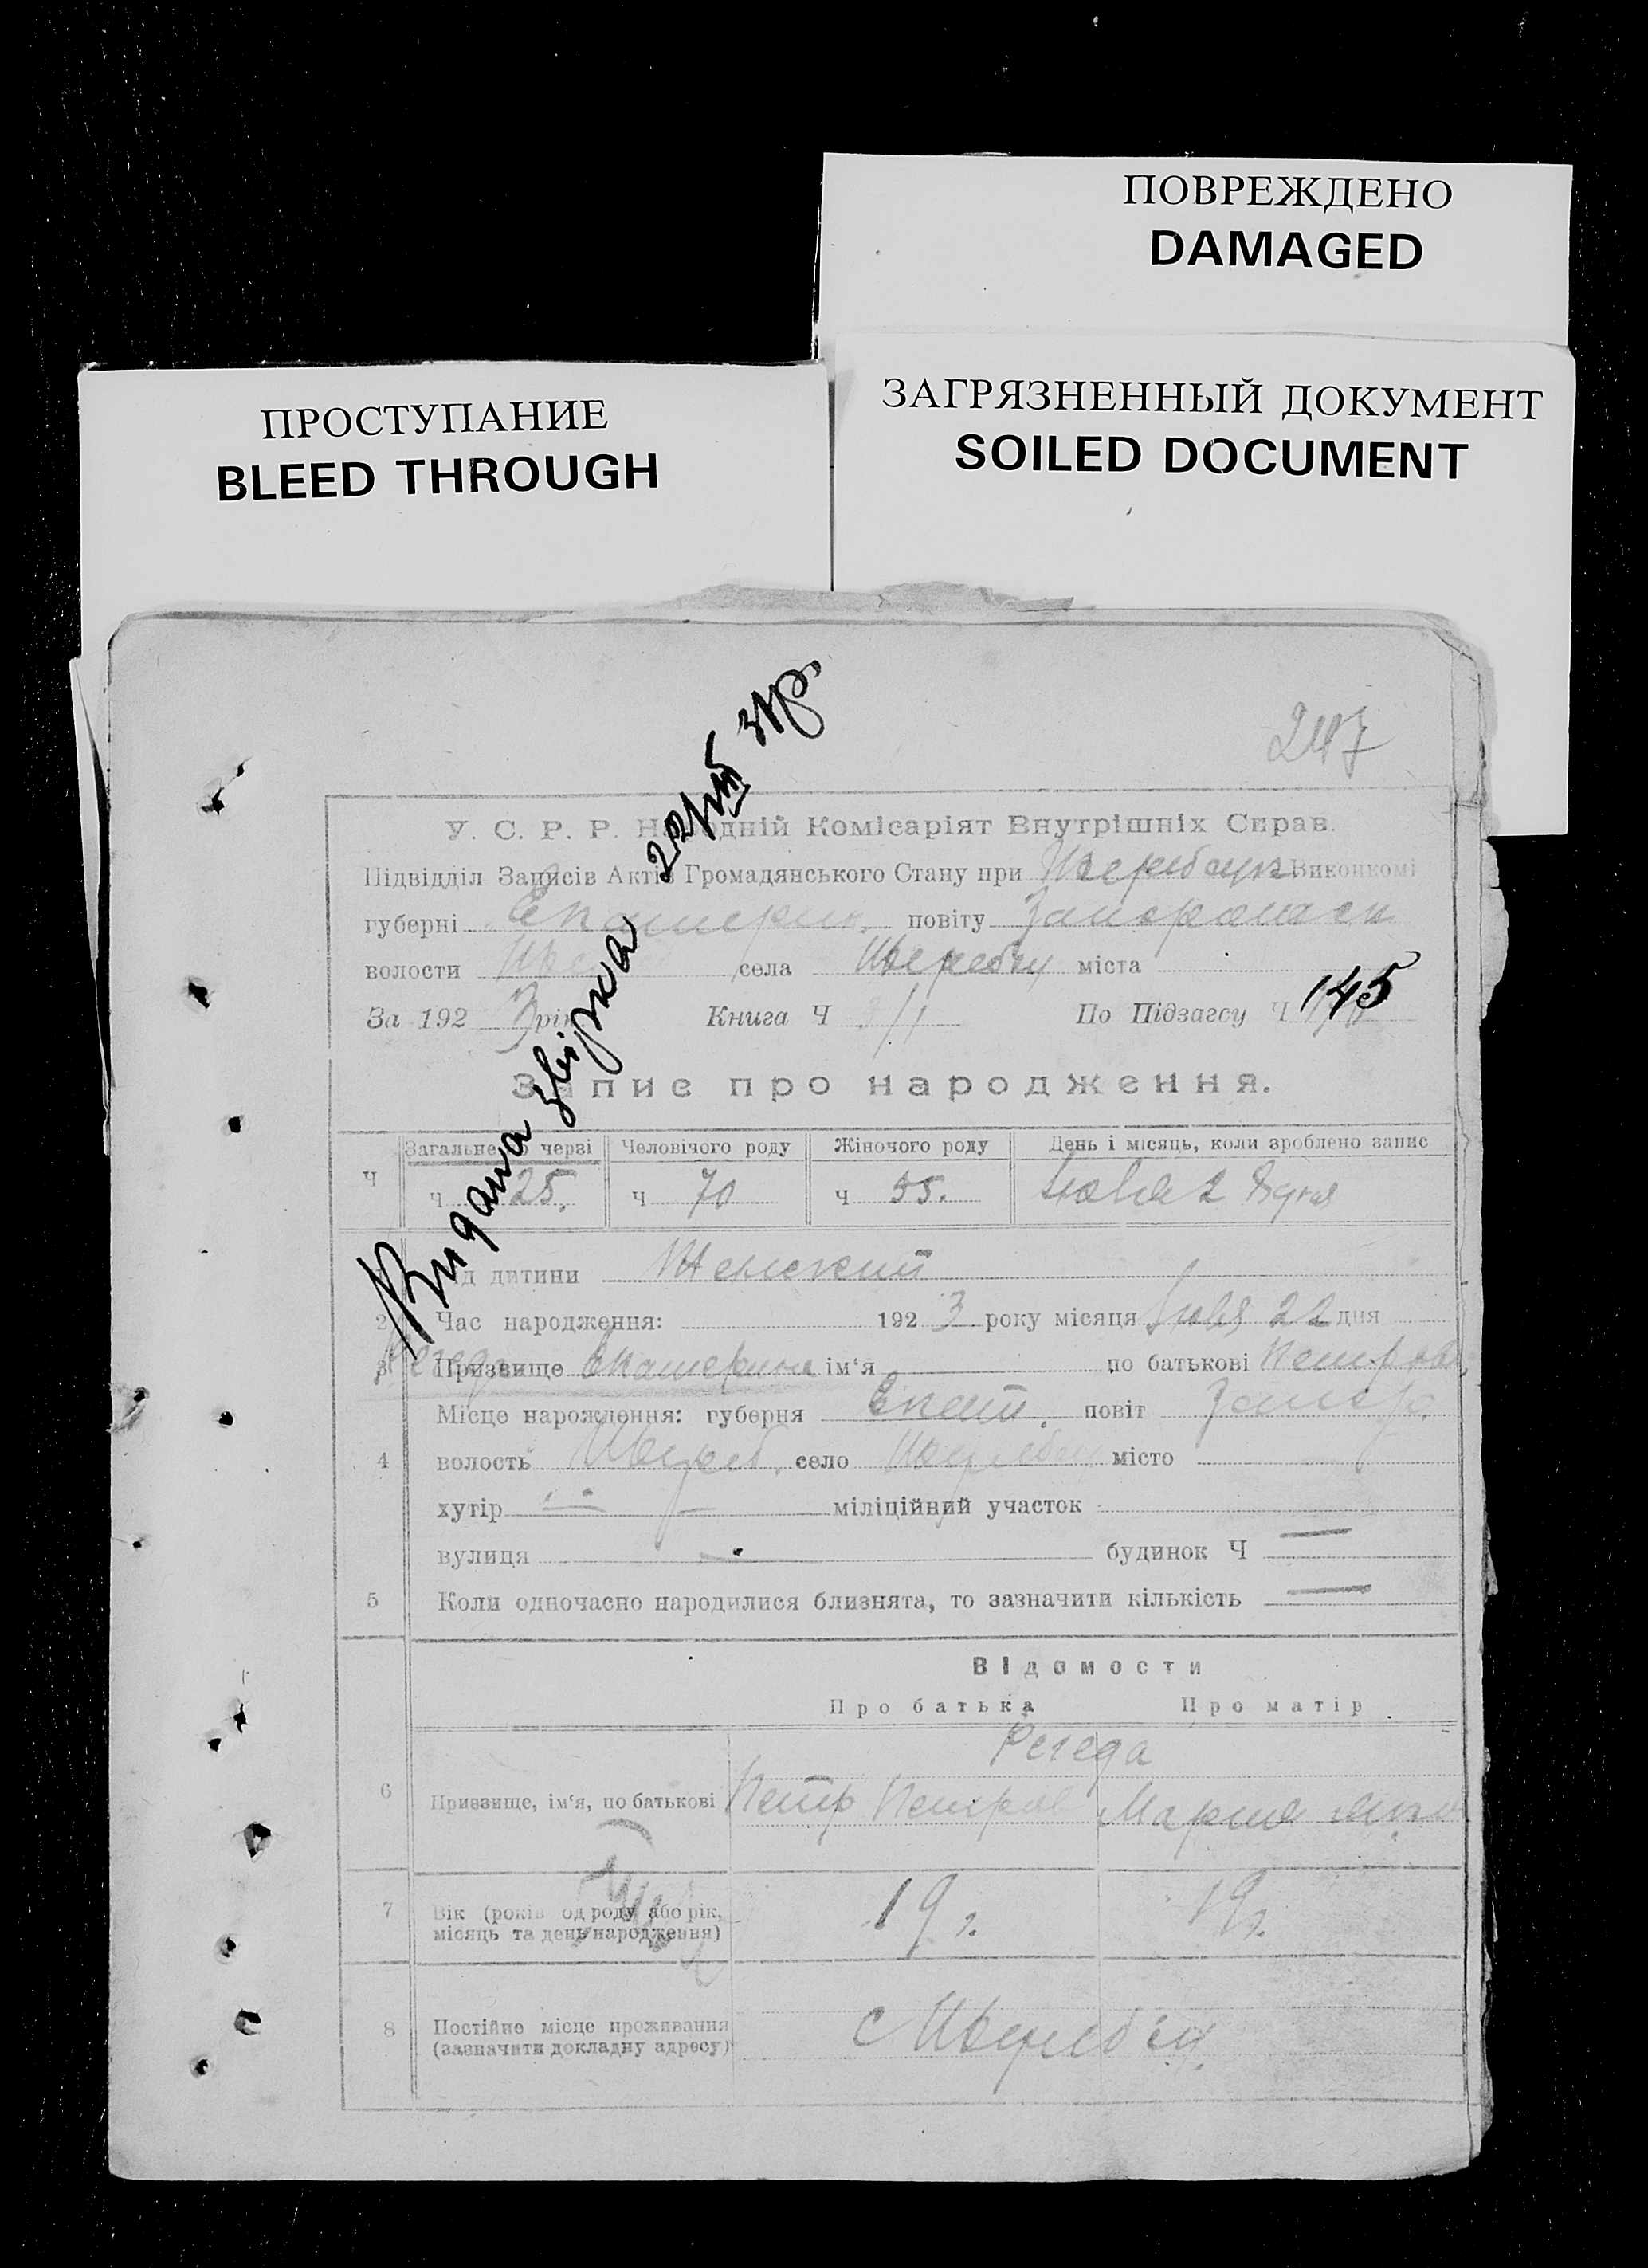 ПОВРЕЖДЕНО
DAMAGED
ПРОСТУПАНИЕ
BLEED THROUGH
ЗАГРЯЗНЕННЫЙ ДОКУМЕНТ
SOILED DOCUMENT
247
У. С. Р. Р. Народній Комісаріят Внутрішніх Справ.
Підвідділ Записів Актів Громадянського Стану при Виконкомі
губерні Екатерин. повіту Запорожск
волости села Жеребец міста
За 192 3 рік Книга Ч По Підзагсу Ч 145
Видана звірка
Запис про народження.
Ч Загальне по черзі Человічого роду Жіночого роду День і місяць, коли зроблено запис
ч 25. ч 70 ч 55. 2 дня
Род дитини Женский
2 Час народження: 192 3 року місяця 22 дня
3 Призвище Регеда Екатерина ім‘я по батькові Петров
Місце нарождення: губерня Екат. повіт Запор.
4 волость Жереб. село місто
хутір — міліційний участок
вулиця — будинок Ч —
5 Коли одночасно народилися близнята, то зазначити кількість —
Відомости
Про батька Про матір
Регеда
6 Призвище, ім‘я, по батькові Петр Петров Мария
7 Вік (років од роду або рік, 19 г. 19 г.
місяць та день народження)
8 Постійне місце проживання с
(зазначити докладну адресу)